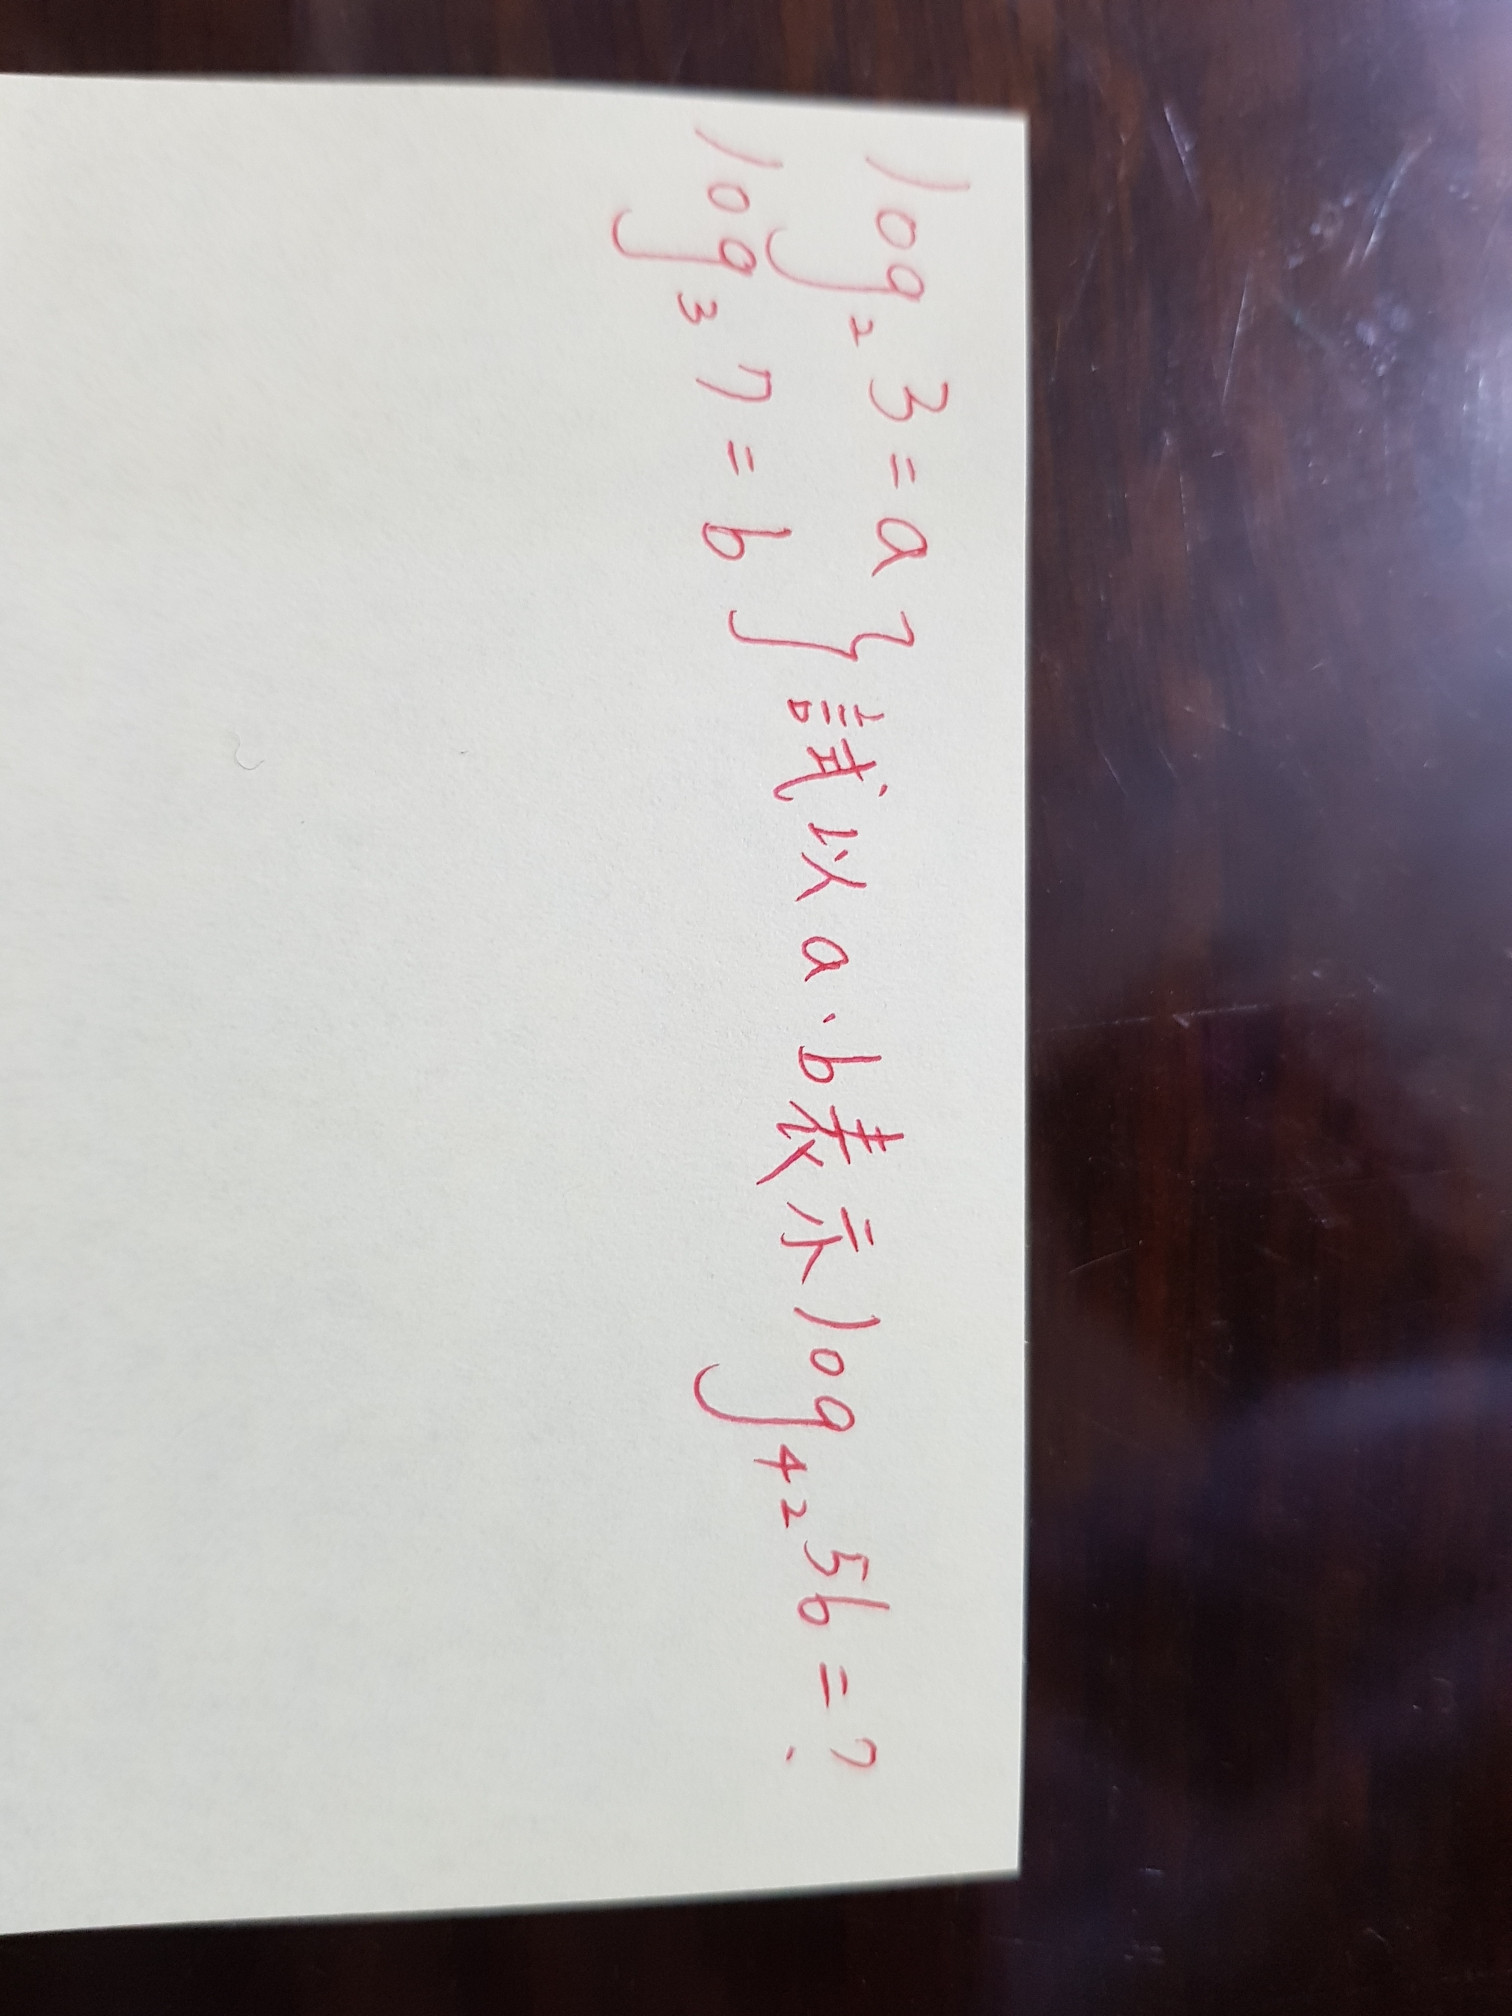 log₂3=a
log₃7=b } 試以a、b表示log₄₂56=?